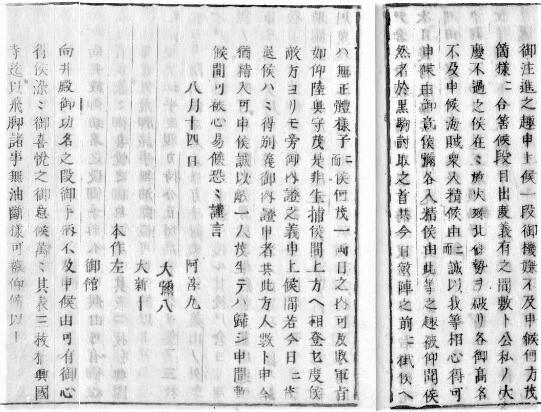 御注進之趣申上候一段御機嫌不及申候何方茂
箇樣ニ合筈候段目出度義有之間敷ト公私ノ大
慶不過之候在々放火ヲ破リ各御高名
不及申候海賊衆入精候由ニ而誠以我等相心得可
申候由御意候彌各入精候由此等之趣被仰聞候
然者於黒駒討取之首共今日敵陣之前ニ候ヘ
ハ無正體樣子ニ而候何茂一兩日之内可及敗軍旨
如仰陸奥守茂是非生捕候間上方ヘ相登セ度候
敵方ヨリモ旁御内證之義申上候間若今日ニ茂
退候ハヽ得別義御内證申者共此方人數ト申合
猶精入可申候誠以敵一人茂生テハ歸シ申間敷
候間可被心易候恐々謹言
八月十四日
阿善九
大彌八
大新十
本作左
御館
向井殿御功名之段御手柄不及申候由可有御心
得候深々御喜悦之御意候萬々其表ニ被國
時迄以飛脚諸事無油斷樣可被仰以上